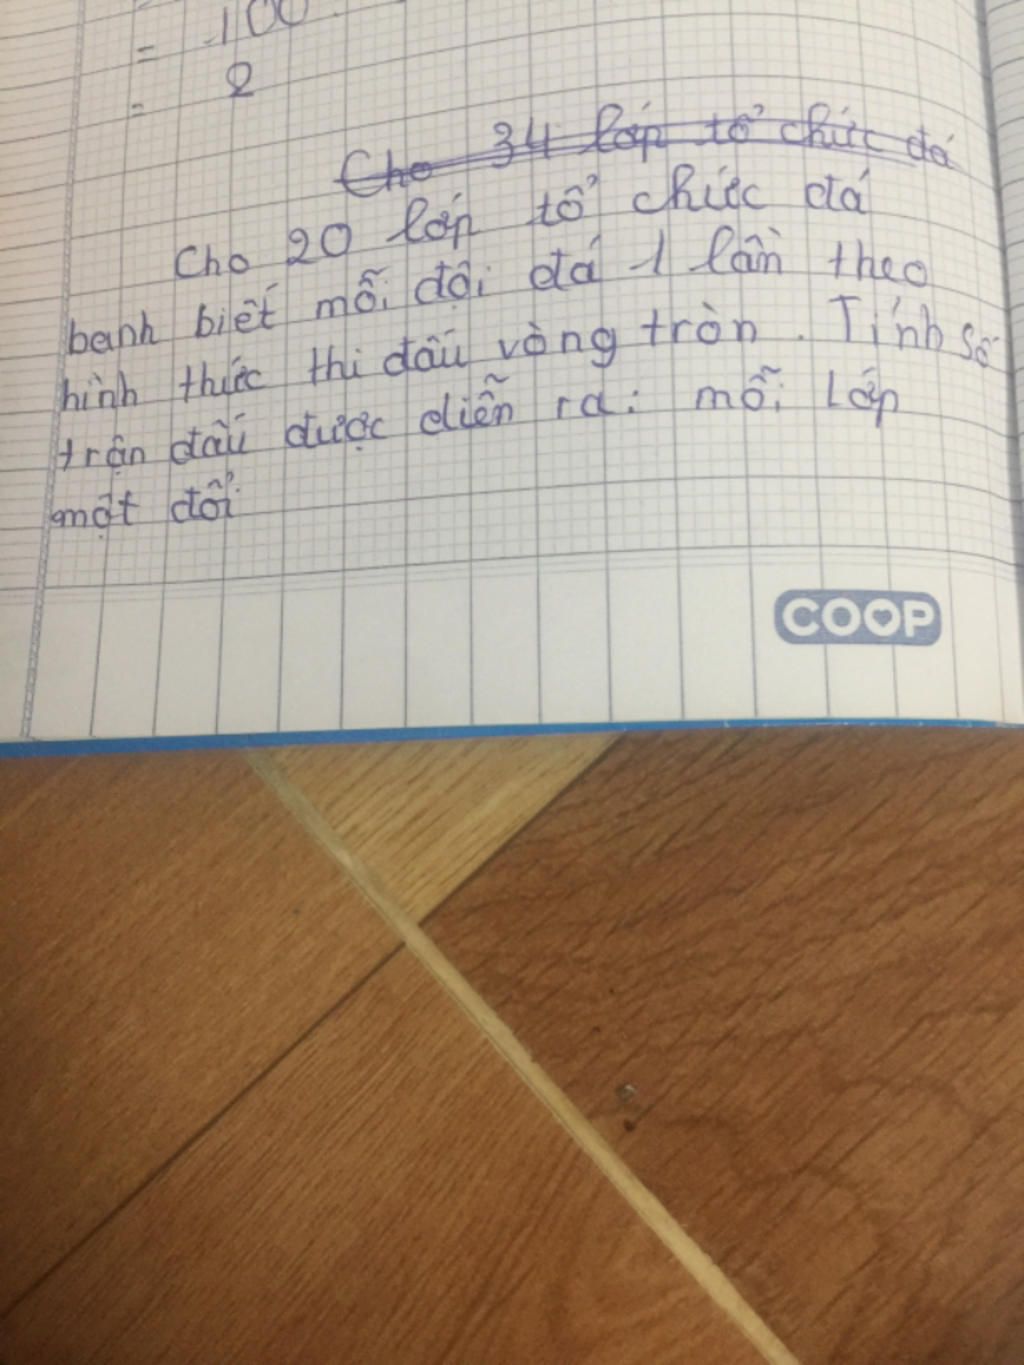 = 100
= 2
Cho 34 lớp tổ chức đá
Cho 20 lớp tổ chức đá
banh biết mỗi đội đá 1 lần theo
hình thức thi đấu vòng tròn. Tính số
trận đấu được diễn ra: mỗi lớp
một đổi
COOP